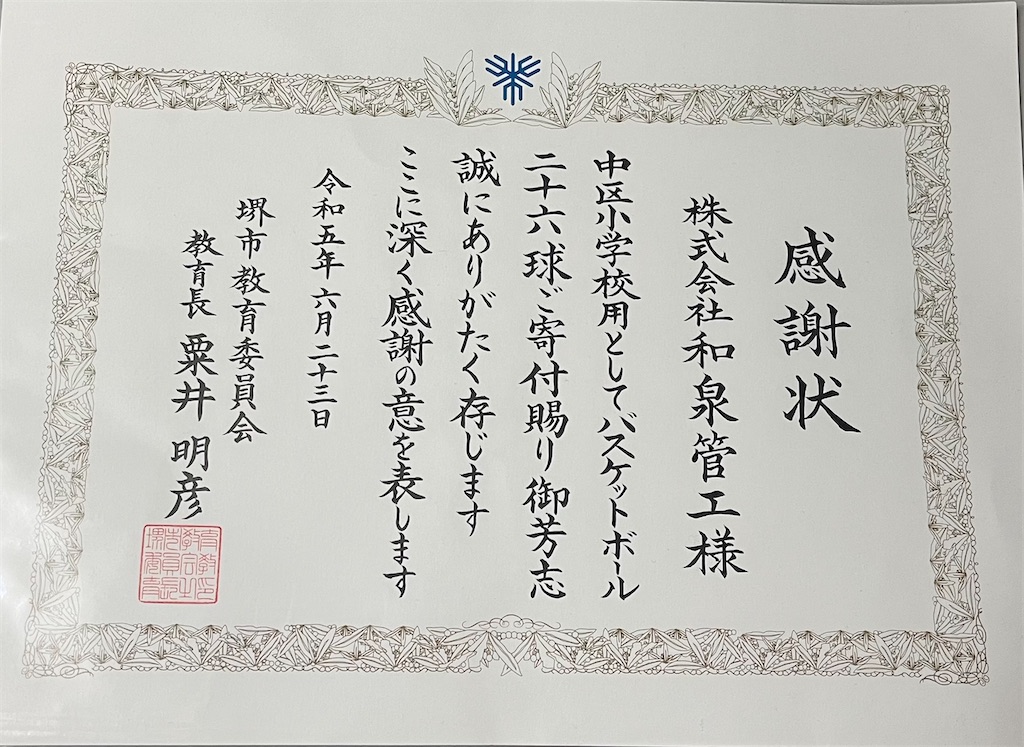 感謝状
株式会社和泉管工様
中区小学校用としてバスケットボール
二十六球ご寄付賜り御芳志
誠にありがたく存じます
ここに深く感謝の意を表します
令和五年六月二十三日
堺市教育委員会
教育長 粟井明彦